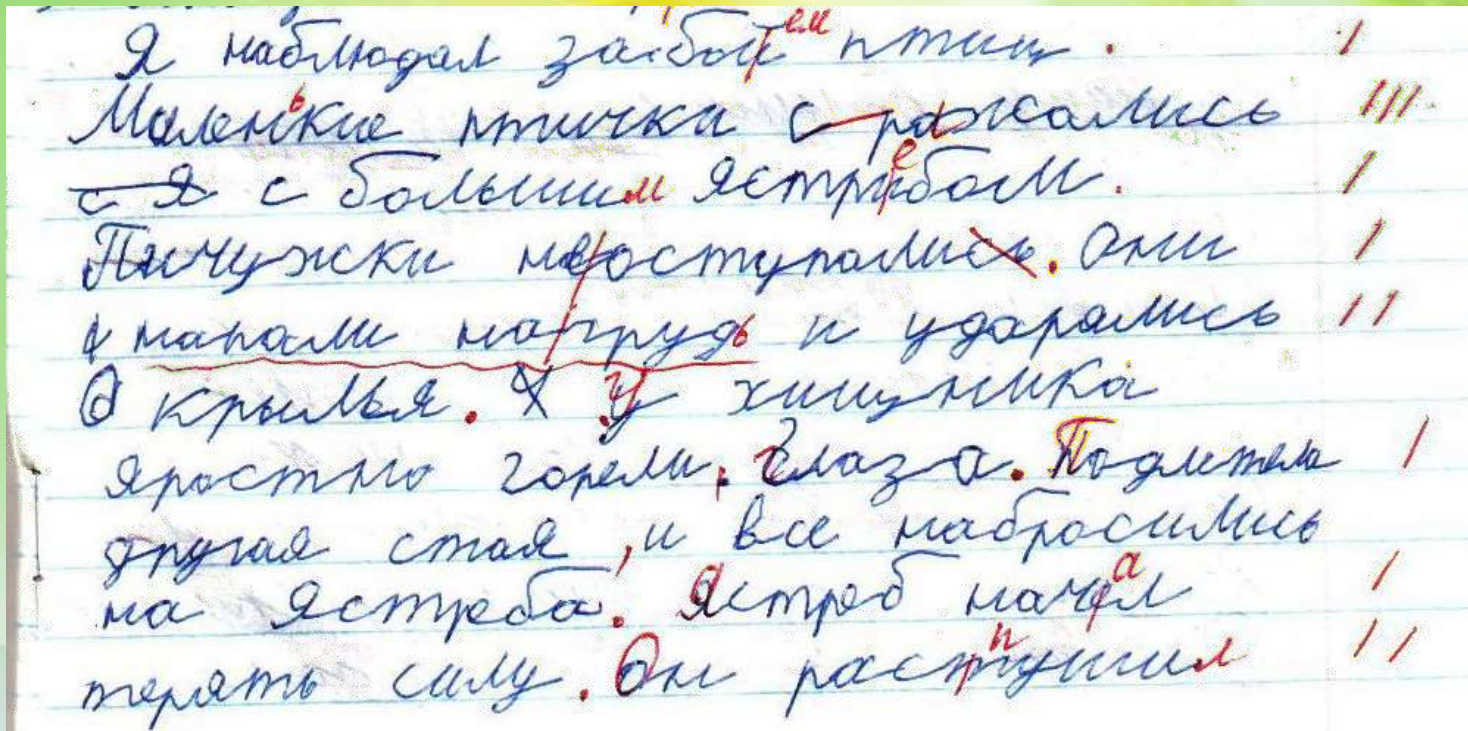 Я наблюдал забоем птиц.
Маленькие птички сражались
с я с большим ястребом.
Пичужки не оступались. Они
напали на грудь и ударялись
О крылья. У хищника
яростно горели, глаза. Подлетела
другая стая, и все набросились
на ястреба. Ястреб начал
терять силу. Он распушил